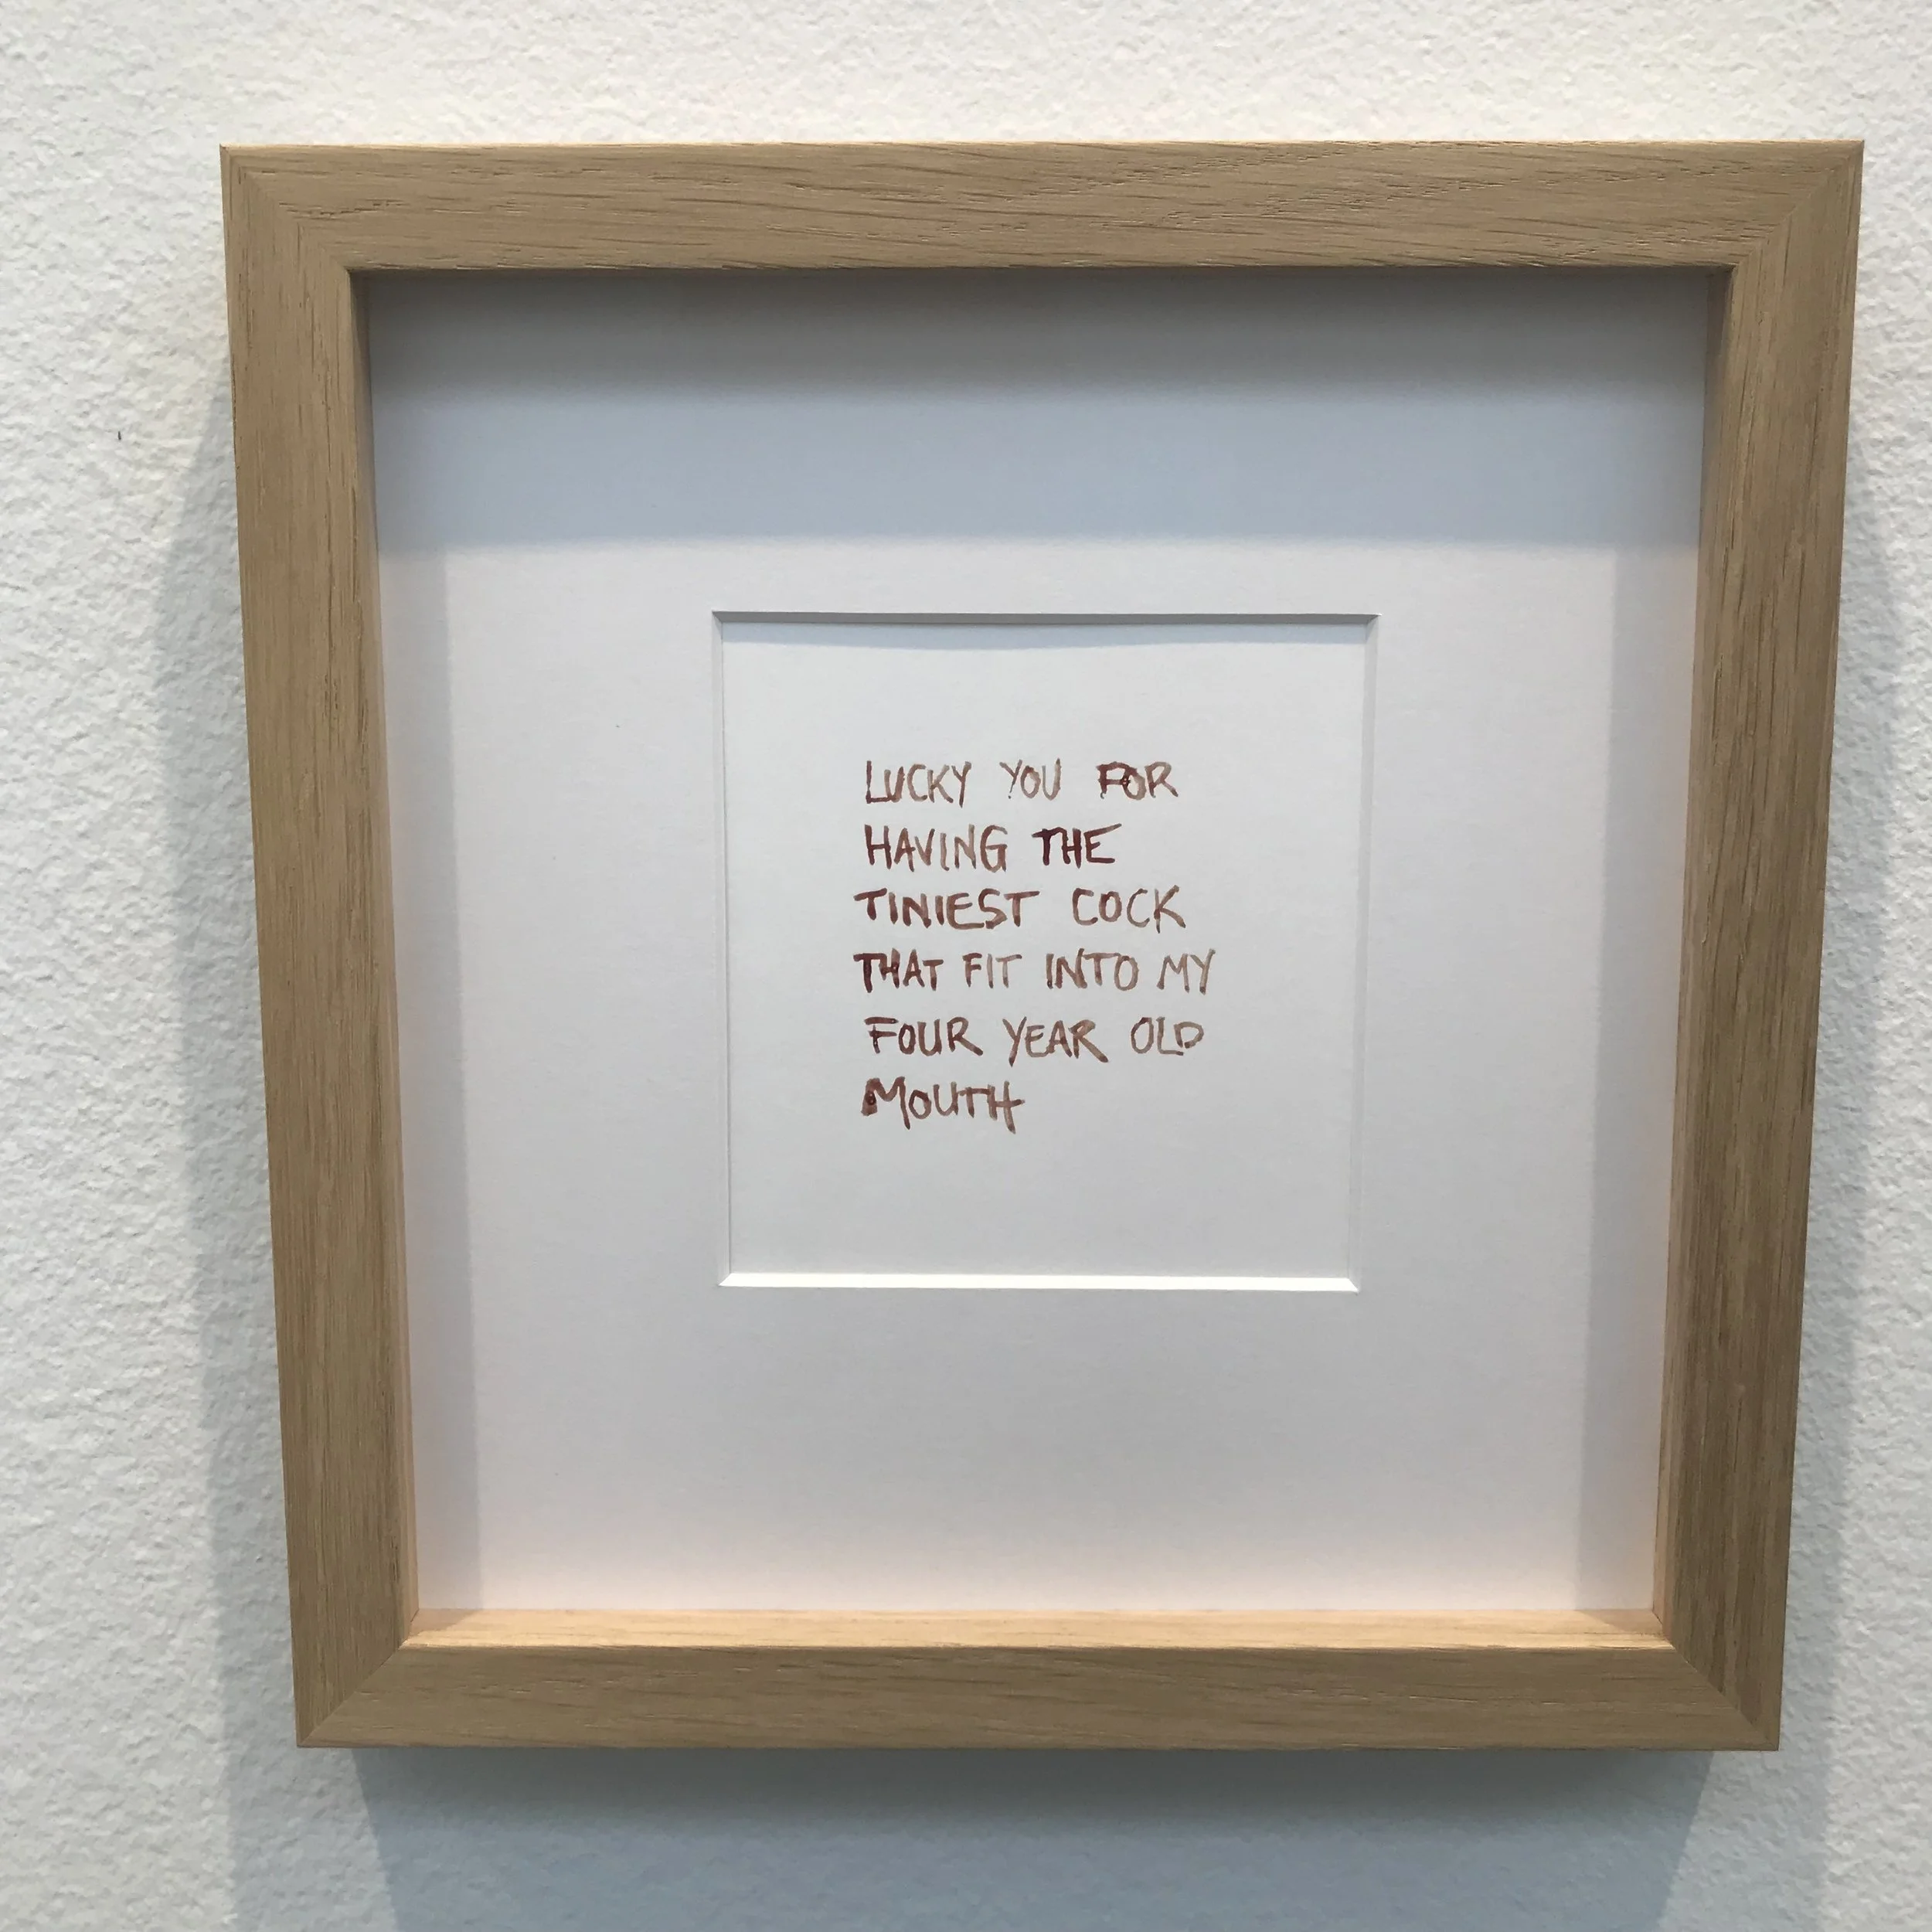 LUCKY YOU FOR
HAVING THE
TINIEST COCK
THAT FIT INTO MY
FOUR YEAR OLD
MOUTH